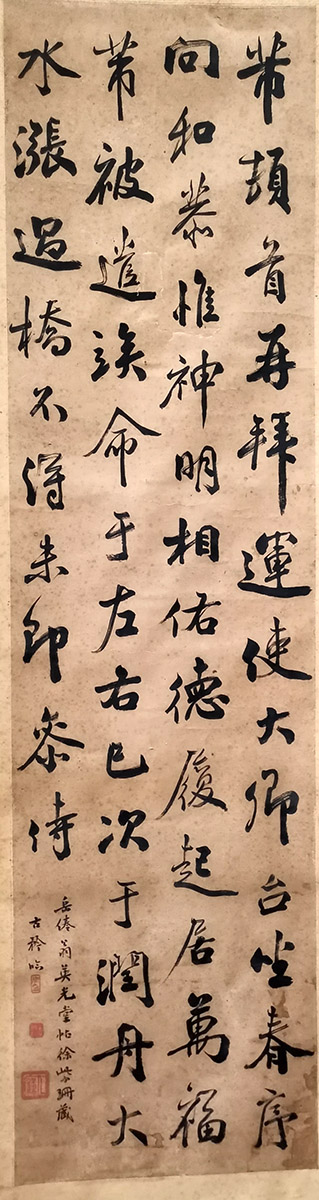 芾頓首再拜運使大卿台坐春序
向和恭惟神明相佑德履起居萬福
芾被遣竢命于左右已次于潤丹大
水漲過橋不得未即參侍
岳倦翁英光堂帖徐紫珊藏
古臨